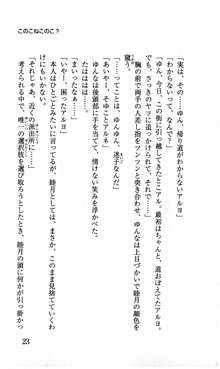 このこねこのこ？
「実は、その…ゆん、帰り道がわからないアルヨ」
「わからないって、なんで？」
「ゆん、今日、この街に引っ越してきたとこアル。最初はちゃんと、道おぼえてたアルヨ。
でも、さっきのヤツに追いかけられて、それで……」
胸の前で両手の人差し指をツンツンと突き合わせ、ゆんなは上目づかいで睦月の顔色を
窺う。
「……ってことは、ゆんゆん、迷子なんだ」
「あいやー、そゆことアルネ」
ゆんなは後頭部に手を当てて、情けない笑みを浮かべた。
「まいったなぁ……」
「あいやー、困ったアルヨ」
本人はひとごとみたいに言ってるが、睦月としては、まさか、このまま見捨てていくわ
けにもいかない。
「それじゃあ、近くの派出所に……」
考えられる中で、唯一の選択肢を選び取ろうとしたとき、睦月の頭に何かが引っ掛かっ
23